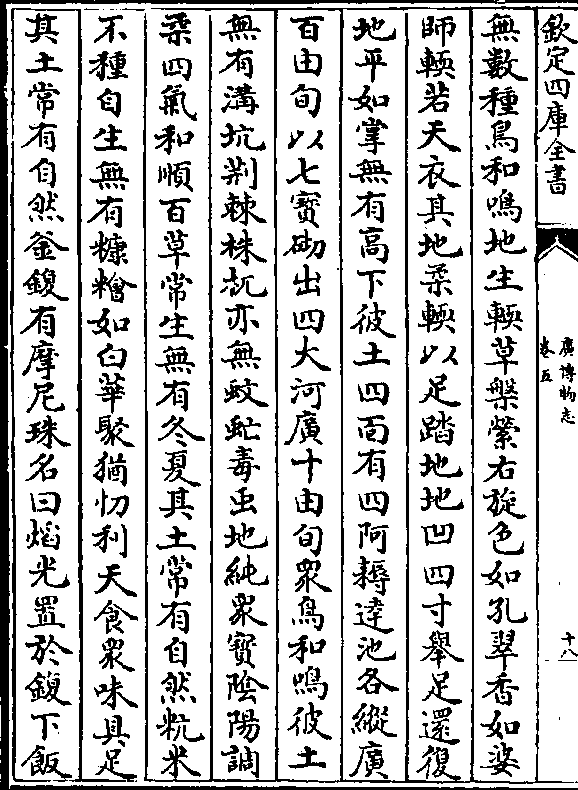 欽定四庫全書
廣博物志
卷五
十八
無數種鳥和鳴地生輭草槃縈右旋色如孔翠香如婆
師輭若天衣其地柔輭以足踏地地凹四寸舉足還復
地平如掌無有高下彼土四面有四阿耨達池各縱廣
百由旬以七寶砌出四大河廣十由旬眾鳥和鳴彼土
無有溝坑荆棘株杌亦無蚊虻毒虫地純眾寶陰陽調
柔四氣和順百草常生無有冬夏其土常有自然秔米
不種自生無有糠糩如白華聚猶忉利天食眾味具足
其土常有自然釜鍑有摩尼珠名曰熖光置於鍑下飯